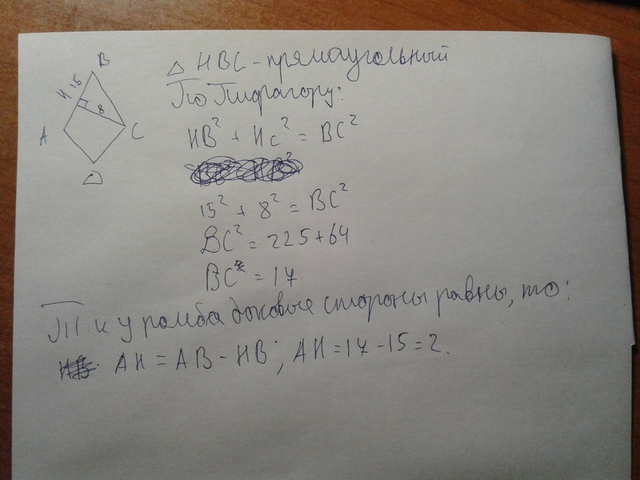 B
15
H
8
A
C
D
△ HBC - прямоугольный
По Пифагору:
HB² + HC² = BC²
15² + 8² = BC²
BC² = 225 + 64
BC = 17
Т. к у ромба боковые стороны равны, то:
AH = AB - HB; AH = 17 - 15 = 2.